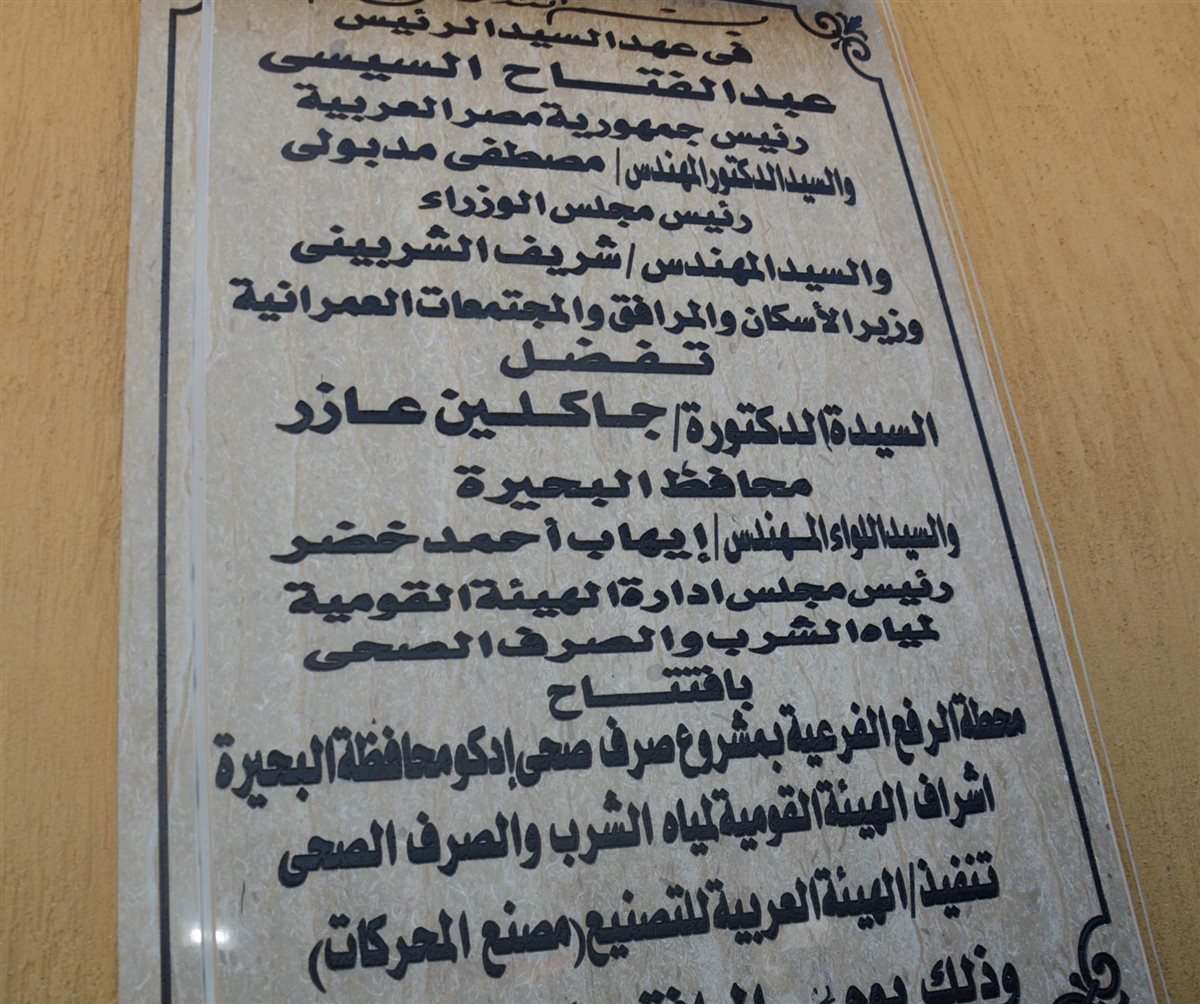 فى عهد السيد الرئيس
عبد الفتاح السيسى
رئيس جمهورية مصر العربية
والسيد الدكتور المهندس / مصطفى مدبولى
رئيس مجلس الوزراء
والسيد المهندس / شريف الشربينى
وزير الأسكان والمرافق والمجتمعات العمرانية
تفضل
السيدة الدكتورة / جاكلين عازر
محافظ البحيرة
والسيد اللواء المهندس / إيهاب أحمد خضر
رئيس مجلس ادارة الهيئة القومية
لمياه الشرب والصرف الصحى
بافتتاح
محطة الرفع الفرعية بمشروع صرف صحى إدكو محافظة البحيرة
اشراف الهيئة القومية لمياه الشرب والصرف الصحى
تنفيذ / الهيئة العربية للتصنيع (مصنع المحركات)
وذلك يوم